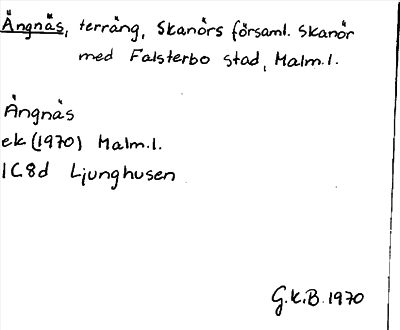 Ängnäs, terräng, Skanörs församl. Skanör
med Falsterbo stad, Malm.l.
Ängnäs
ek (1970) Malm.l.
1C8d Ljunghusen
G.K.B. 1970